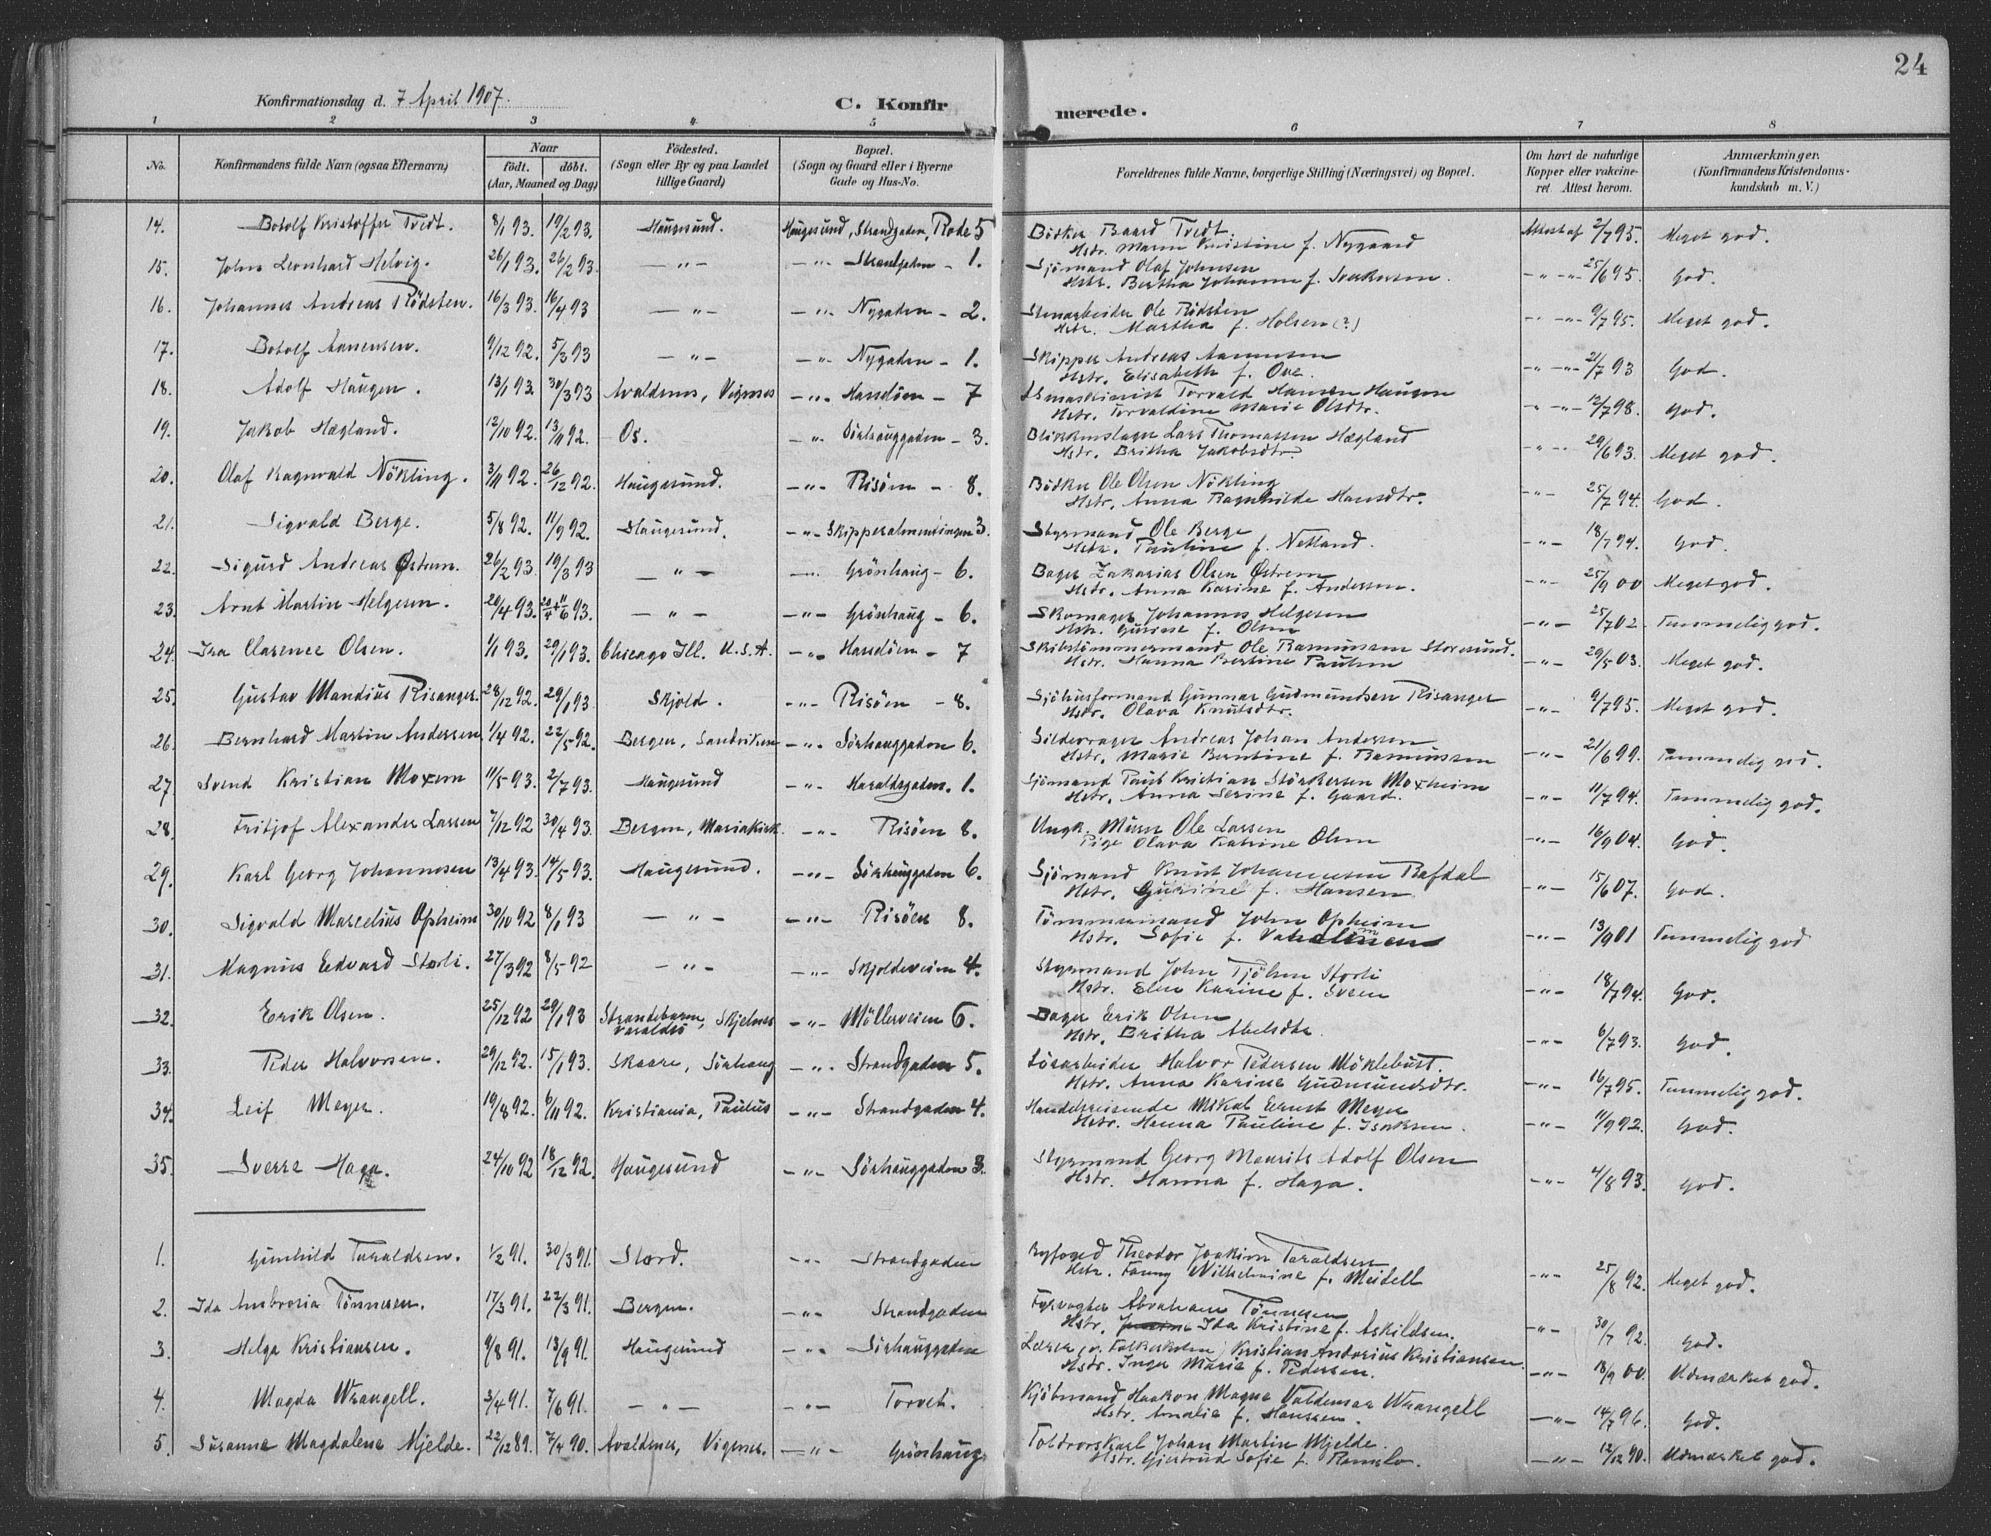 24
Konfirmationsdag d. 7 April 1907. C. Konfirmerede.
1 2 3 4 5 6 7 8
No. Konfirmandens fulde Navn (ogsaa Efternavn) Naar født. døbt. (Aar, Maaned og Dag) Fødested. (Sogn eller By og paa Landet tillige Gaard) Bopæl. (Sogn og Gaard eller i Byerne Gade og Hus-No. Forældrenes fulde Navne, borgerlige Stilling (Næringsvei) og Bopæl. Om havt de naturlige Kopper eller vakcineret. Attest herom. Anmærkninger. (Konfirmandens Kristendomskundskab m. V.)
14. Botolf Kristoffer Tvedt. 8/1 93. 19/2 93. Haugesund. Haugesund, Strandgaden, Rode 5 Bødker Baard Tvedt. Attest af 2/7 95. Meget god.
Hstr. Maren Kristine f. Nygaard
15. John Leonhard Helvig. 26/1 93. 26/2 93. —"— —"— Strandgaden – 1. Sjømand Olaf Johnsen —"— 25/6 95. God.
Hstr. Bertha Johanne f.
16. Johannes Andreas Rødsten. 16/3 93. 16/4 93 —"— —"— Nygaden – 2. Stenarbeider Ole Rødsten —"— 9/7 95. Meget god.
Hstr. Martha f. Holsen (?)
17. Botolf Aanensen. 9/12 92. 5/3 93 —"— —"— Nygaden – 1. Skipper Andreas Aanensen —"— 21/7 93 God.
Hstr. Elisabeth f. Ove.
18. Adolf Haugen. 13/1 93. 30/3 93 Avaldsnes, Vigsnes —"— Hasseløen – 7 Torvald Hansen Haugen —"— 12/7 98. God.
Hstr. Torvaldine Marie Olsdtr.
19. Jakob Hægland. 12/10 92. 13/11 92. Os. —"— Sørhauggaden – 3. Blikkenslager Lars Thomassen Hægland —"— 29/6 93. Meget god.
Hstr. Britha Jakobsdtr.
20. Olaf Ragnvald Nökling. 3/11 92. 26/12 92. Haugesund. —"— Risøen – 8. Bødker Ole Olsen Nökling —"— 25/7 94. God.
Hstr. Anna Ragnhilde Hansdtr.
21. Sigvald Berge. 5/8 92. 11/9 92. Haugesund. —"— Skipperalmenningen 3. Styrmand Ole Berge —"— 18/7 94. God.
Hstr. Pauline f. Netland.
22. Sigurd Andreas Østrem. 26/2 93. 19/3 93 —"— —"— Grønhaug – 6. Bager Zakarias Olsen Østrem —"— 25/9 00 Meget god.
Hstr. Anna Karine f. Andersen.
23. Arnt Martin Helgesen. 20/4 93. 20/4 + 11/6 93. —"— —"— Grønhaug – 6. Skomager Johannes Helgesen —"— 25/7 02. Temmelig god.
Hstr. Gurine f. Olsen
24. Ira Clarence Olsen. 1/1 93. 29/1 93. Chicago Ill. U.S.A. —"— Hasseløen – 7 Skibstømmermand Ole Rasmussen Storesund. —"— 29/5 03. Meget god.
Hstr. Hanna Bertine Paulsen
25. Gustav Mandius Risanger. 28/12 92. 29/1 93. Skjold. —"— Risøen – 8. Sjøhusformand Gunnar Gudmundsen Risanger —"— 9/7 95. Meget god.
Hstr. Olava Knutsdtr.
26. Bernhard Martin Andersen 1/4 92. 22/5 92. Bergen, Sandviken —"— Sørhauggaden 6. Sildevrager Andreas Johan Andersen —"— 21/6 99. Temmelig god.
Hstr. Marie Berntine f. Rasmussen
27. Svend Kristian Moxem 11/5 93. 2/7 93. Haugesund —"— Haraldsgaden. 1. Sjømand Paul Kristian Størkersen Moxheim —"— 11/7 94. Temmelig god.
Hstr. Anna Serine f. Gaard.
28. Fritjof Alexander Larsen 7/12 92 30/4 93. Bergen, Mariakirk. —"— Risøen 8. Ungk. Murer Ole Larsen —"— 16/9 04. God.
Pige Olava Katrine Olsen
29. Karl Georg Johannesen 13/4 93. 14/5 93. Haugesund. —"— Sørhauggaden 6. Sjømand Knut Johannesen Rafdal —"— 15/6 07. God.
Hstr. Gurine f. Hansen
30. Sigvald Marcelius Opheim 30/10 92 8/1 93 —"— —"— Risøen 8. Tømmermand John Opheim —"— 13/9 01 Temmelig god
Hstr. Sofie f.
31. Magnus Edvard Storli. 27/3 92 8/5 92 —"— —"— Skjoldeveien 4. Styrmand John Tjølsen Storli —"— 18/7 94. God.
Hstr. Elen Karine f. Sveen
32. Erik Olsen. 25/12 92 29/1 93 Strandebarm, Varaldsø, Skjelnes —"— Møllerveien 6. Bager Erik Olsen —"— 6/7 93. God.
Hstr. Britha Abelsdtr.
33. Peder Halvorsen. 29/12 92. 15/1 93. Skaare, Sørhaug —"— Strandgaden 5. Løsarbeider Halvor Pedersen Möklebust. —"— 16/7 95. Temmelig god.
Hstr. Anna Karine Gudmundsdtr.
34. Leif Meyer. 19/8 92. 6/11 92. Kristiania, Paulus —"— Strandgaden 4. Handelsreisende Mikal Ernst Meyer —"— 11/9 92. God.
Hstr. Hanna Pauline f. Isaksen.
35. Sverre Haga. 24/10 92 18/12 92. Haugesund —"— Sørhauggaden 3. Styrmand Georg Maurits Adolf Olsen —"— 4/8 93. God.
Hstr. Hanna f. Haga.
1. Gunhild Taraldsen. 1/2 91. 30/3 91. Stord. —"— Strandgaden Byfoged Theodor Joakim Taraldsen —"— 25/8 92. Meget god.
Hstr. Fanny Wilhelmine f. Meidell
2. Ida Ambrosia Tønnesen. 17/3 91. 22/3 91. Bergen. —"— Strandgaden Fyrvogter Abraham Tønnesen —"— 30/7 92. God.
Hstr. Ida Kristine f. Askildsen.
3. Helga Kristiansen. 9/8 91. 13/9 91. Haugesund —"— Sørhauggaden Lærer (v. Folkeskolen) Kristian Andorius Kristiansen. —"— 18/9 00. Udmærket god.
Hstr. Inger Marie f. Pedersen.
4. Magda Wrangell. 3/4 91. 7/6 91. —"— —"— Torvet. Kjøbmand Haakon Magne Valdemar Wrangell —"— 14/7 96. God.
Hstr. Amalie f. Hanssen.
5. Susanne Magdalene Mjelde. 22/12 89. 7/4 90. Avaldsnes, Vigsnes. —"— Grønhaug Toldrorskarl Johan Martin Mjelde. —"— 12/12 90. Udmærket god.
Hstr. Gjertrud Sofie f. Ramslo.